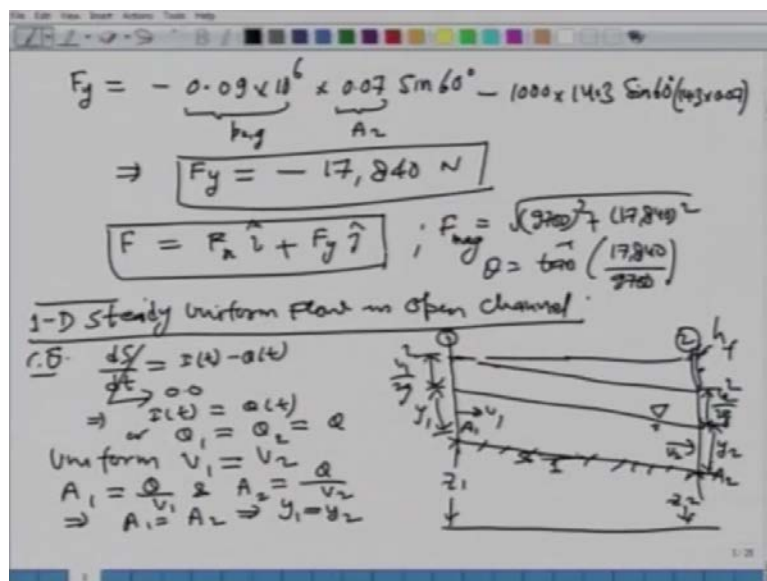 File Edit View Insert Actions Tools Help
Fy = - 0.09×10⁶ × 0.07 Sin60° - 1000×14.3 Sin60°(14.3×0.07)
A2
⇒ Fy = - 17,840 N
F = Fx î + Fy ĵ ; Fmag = √(9700)² + (17,840)²
θ = tan⁻¹ (17,840/9700)
1-D Steady Uniform Flow in Open Channel.
C.E. dS/dt = I(t) - Q(t)
→ 0.0
⇒ I(t) = Q(t)
or Q1 = Q2 = Q
Uniform V1 = V2
A1 = Q/V1 & A2 = Q/V2
⇒ A1 = A2 ⇒ y1 = y2
1 2 hf
y1 A1 v1
v2 y2 A2
z1 z2